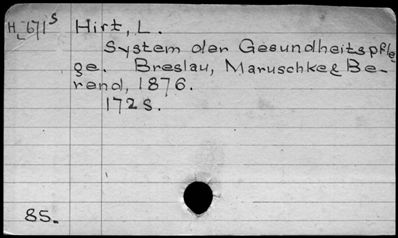 H671S Hirt, L.
System der Gesundheitspfle
ge. Breslau, Maruschke& Be-
rend, 1876.
172 S.
85.